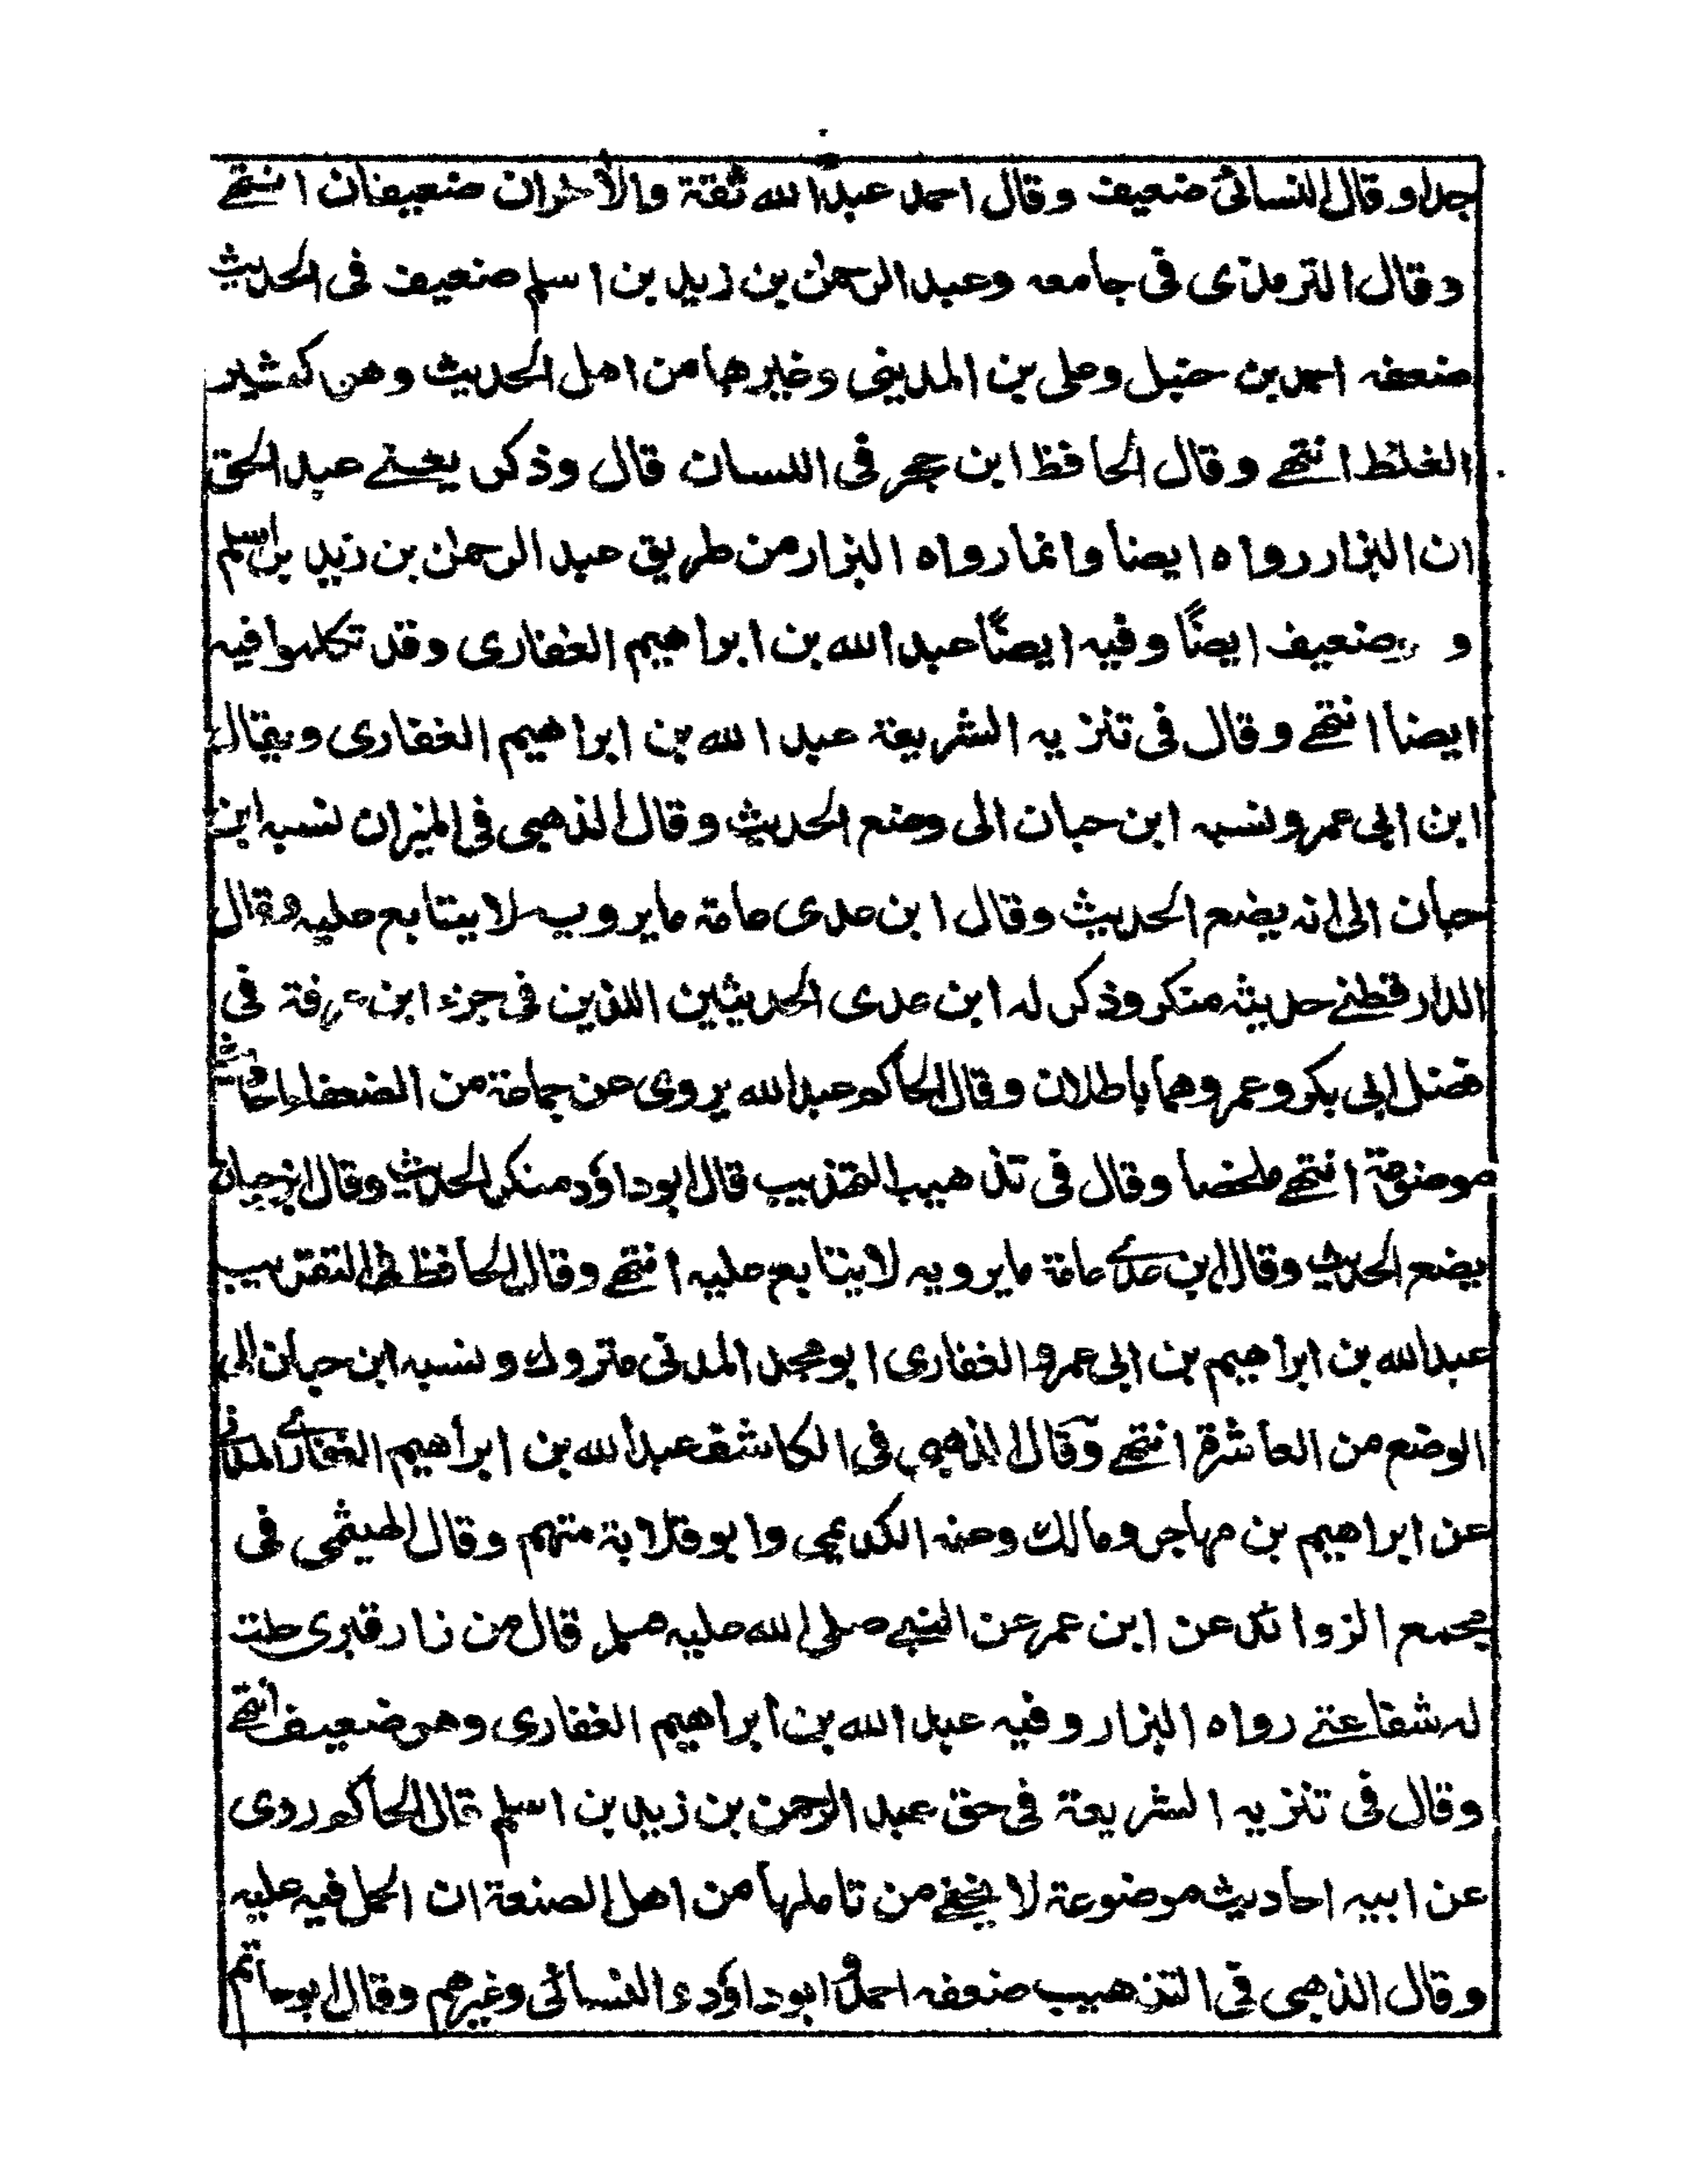 جدا وقال النسائى ضعيف وقال احمد عبد الله ثقة والأخران ضعيفان انتهے
وقال الترمذى فى جامعه وعبد الرحمٰن بن زيد بن اسلم ضعيف فى الحديث
ضعفه احمد بن حنبل وعلى بن المدينى وغيرهما من اهل الحديث وهو كثير
الغلط انتهے وقال الحافظ ابن حجر فى اللسان قال وذكر يعنے عبد الحق
ان البزار رواه ايضا وانما رواه البزار من طريق عبد الرحمٰن بن زيد بن اسلم
و ضعيف ايضًا وفيه ايضًا عبد الله بن ابراهيم الغفارى وقد تكلموا فيه
ايضا انتهے وقال فى تنزيه الشريعة عبد الله بن ابراهيم الغفارى ويقال
ابن ابى عمرو نسبه ابن حبان الى وضع الحديث وقال الذهبى فى الميزان نسبه ابن
حبان الى انه يضع الحديث وقال ابن عدى عامة ما يرويه لا يتابع عليه وقال
الدارقطنے حديثه منكر وذكر له ابن عدى الحديثين اللذين فى جزء ابن عرفة فى
فضل ابى بكر وعمر وهما باطلان وقال الحاكم عبد الله يروى عن جماعة من الضعفاء احاديث
موضوعة انتهے ملخصا وقال فى تذهيب التهذيب قال ابو داؤد منكر الحديث وقال ابن حبان
يضع الحديث وقال ابن عدے عامة ما يرويه لا يتابع عليه انتهے وقال الحافظ فى التقريب
عبد الله بن ابراهيم بن ابى عمرو الغفارى ابو محمد المدنى متروك ونسبه ابن حبان الى
الوضع من العاشرة انتهے وقال الذهبى فى الكاشف عبد الله بن ابراهيم الغفارے المدنى
عن ابراهيم بن مهاجر ومالك وعنه الكديمى وابو قلابة متهم وقال الهيثمى فى
مجمع الزوائد عن ابن عمر عن النبے صلى الله عليه وسلم قال من زار قبرى حلت
له شفاعتے رواه البزار وفيه عبد الله بن ابراهيم الغفارى وهو ضعيف انتهے
وقال فى تنزيه الشريعة فى حق عبد الرحمن بن زيد بن اسلم قال الحاكم روى
عن ابيه احاديث موضوعة لا يخفے من تاملها من اهل الصنعة ان الحمل فيه عليه
وقال الذهبى فى التذهيب ضعفه احمد و ابو داؤد والنسائى وغيرهم وقال ابو حاتم